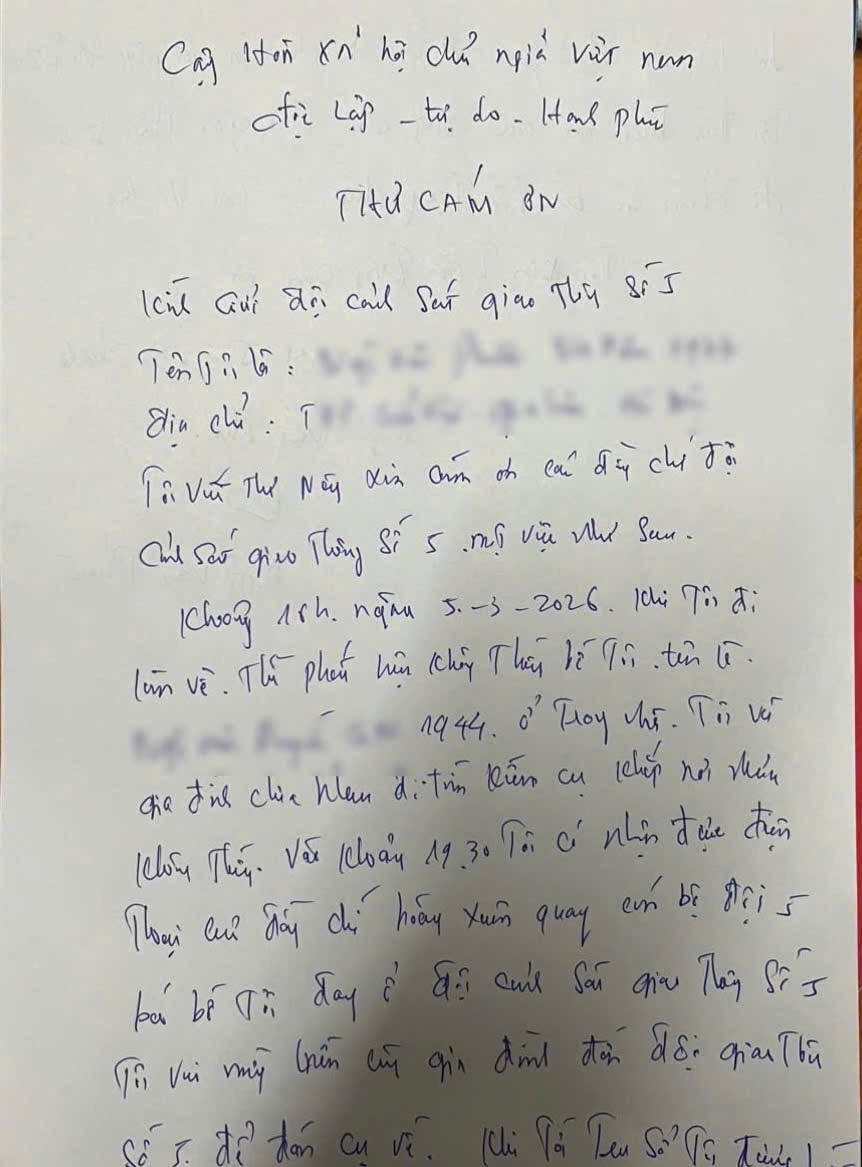 Cộng Hòa xã hội chủ nghĩa việt nam
độc Lập - tự do - Hạnh phúc
THƯ CẢM ƠN
Kính Gửi đội cảnh Sát giao Thông Số 5
Tên Tôi là :
địa chỉ : T
Tôi viết Thư Này xin cảm ơn các đồng chí đội
Cảnh Sát giao Thông Số 5 . một việc như Sau .
Khoảng 18h. ngày 5-3-2026. Khi Tôi đi
làm về . Thì phát hiện không Thấy bố Tôi . tên là .
1944. ở nhà. Tôi và
gia đình chia nhau đi tìm kiếm cụ khắp nơi
không Thấy. Vào khoảng 19.30 Tôi có nhận được điện
Thoại của đồng chí hoàng xuân cán bộ đội 5
báo bố Tôi đang ở đội cảnh Sát giao Thông Số 5
Tôi vui mừng cùng gia đình đến đội giao Thông
Số 5. để đón cụ về. Khi Tới Trụ Sở Tôi được